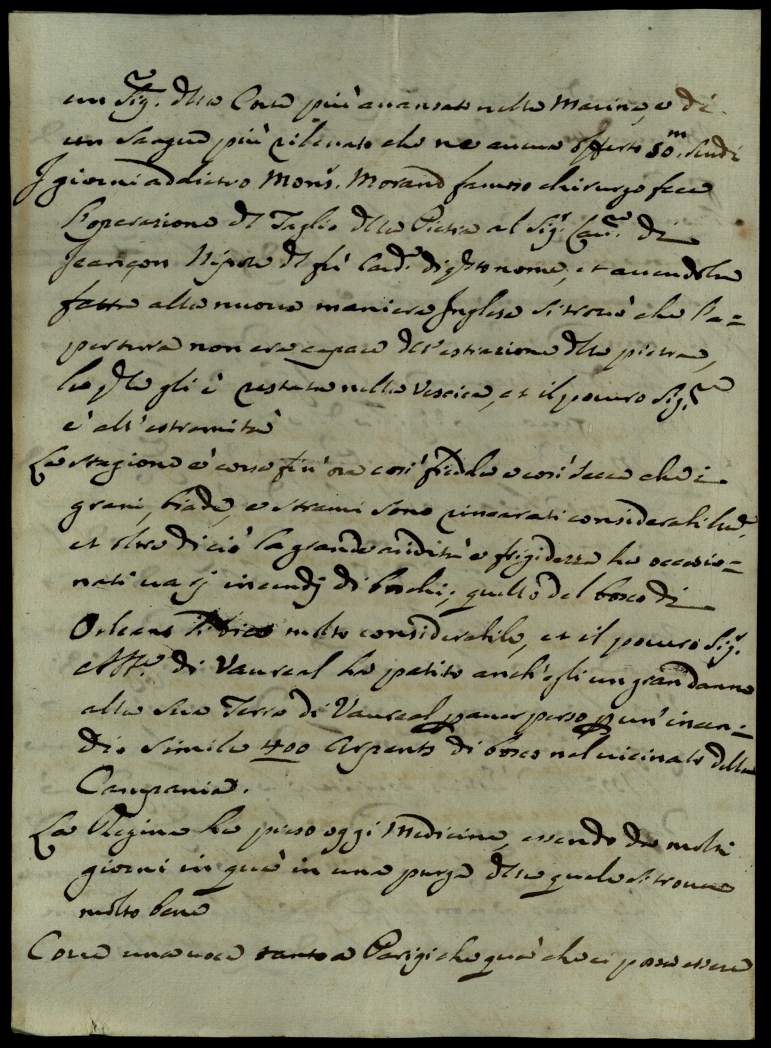 un Sig.re della Corte più avansato nella Marina, e di
un sangue più rilevato che ne aveva offerto 50.m scudi
I giorni addietro Mons. Morand famoso chirurgo fece
l'operazione del Taglio della Pietra al Sig.r Cav.re di
Jeançon Nipote del fù Card.e di q.sto nome, et avendola
fatta alla nuova maniera Inglese si trovò che l'a=
pertura non era capace dell'estrazione della pietra,
la q.le gli è restata nella vescica, et il povero Sig.re
è all'estremità
La stagione è corsa fin'ora così fredda e così secca che i
grani, biade, e strami sono rincarati considerabilm.e,
et oltre di ciò la grande aridità e frigidezza ha occasio=
nati varj incendj di boschi; quello del bosco di
Orleans molto considerabile, et il povero Sig.r
di Vaureal ha patito anch'egli un gran danno
alla sua Terra di Vaureal p aver perso p un'incen=
dio simile 400 Arpents di bosco nel vicinato della
Campania.
La Regina ha preso oggi Medicina, essendo da molti
giorni in quà in una purga della quale si trova
molto bene
Corre una voce tanto a Parigi che quà che ci possa essere